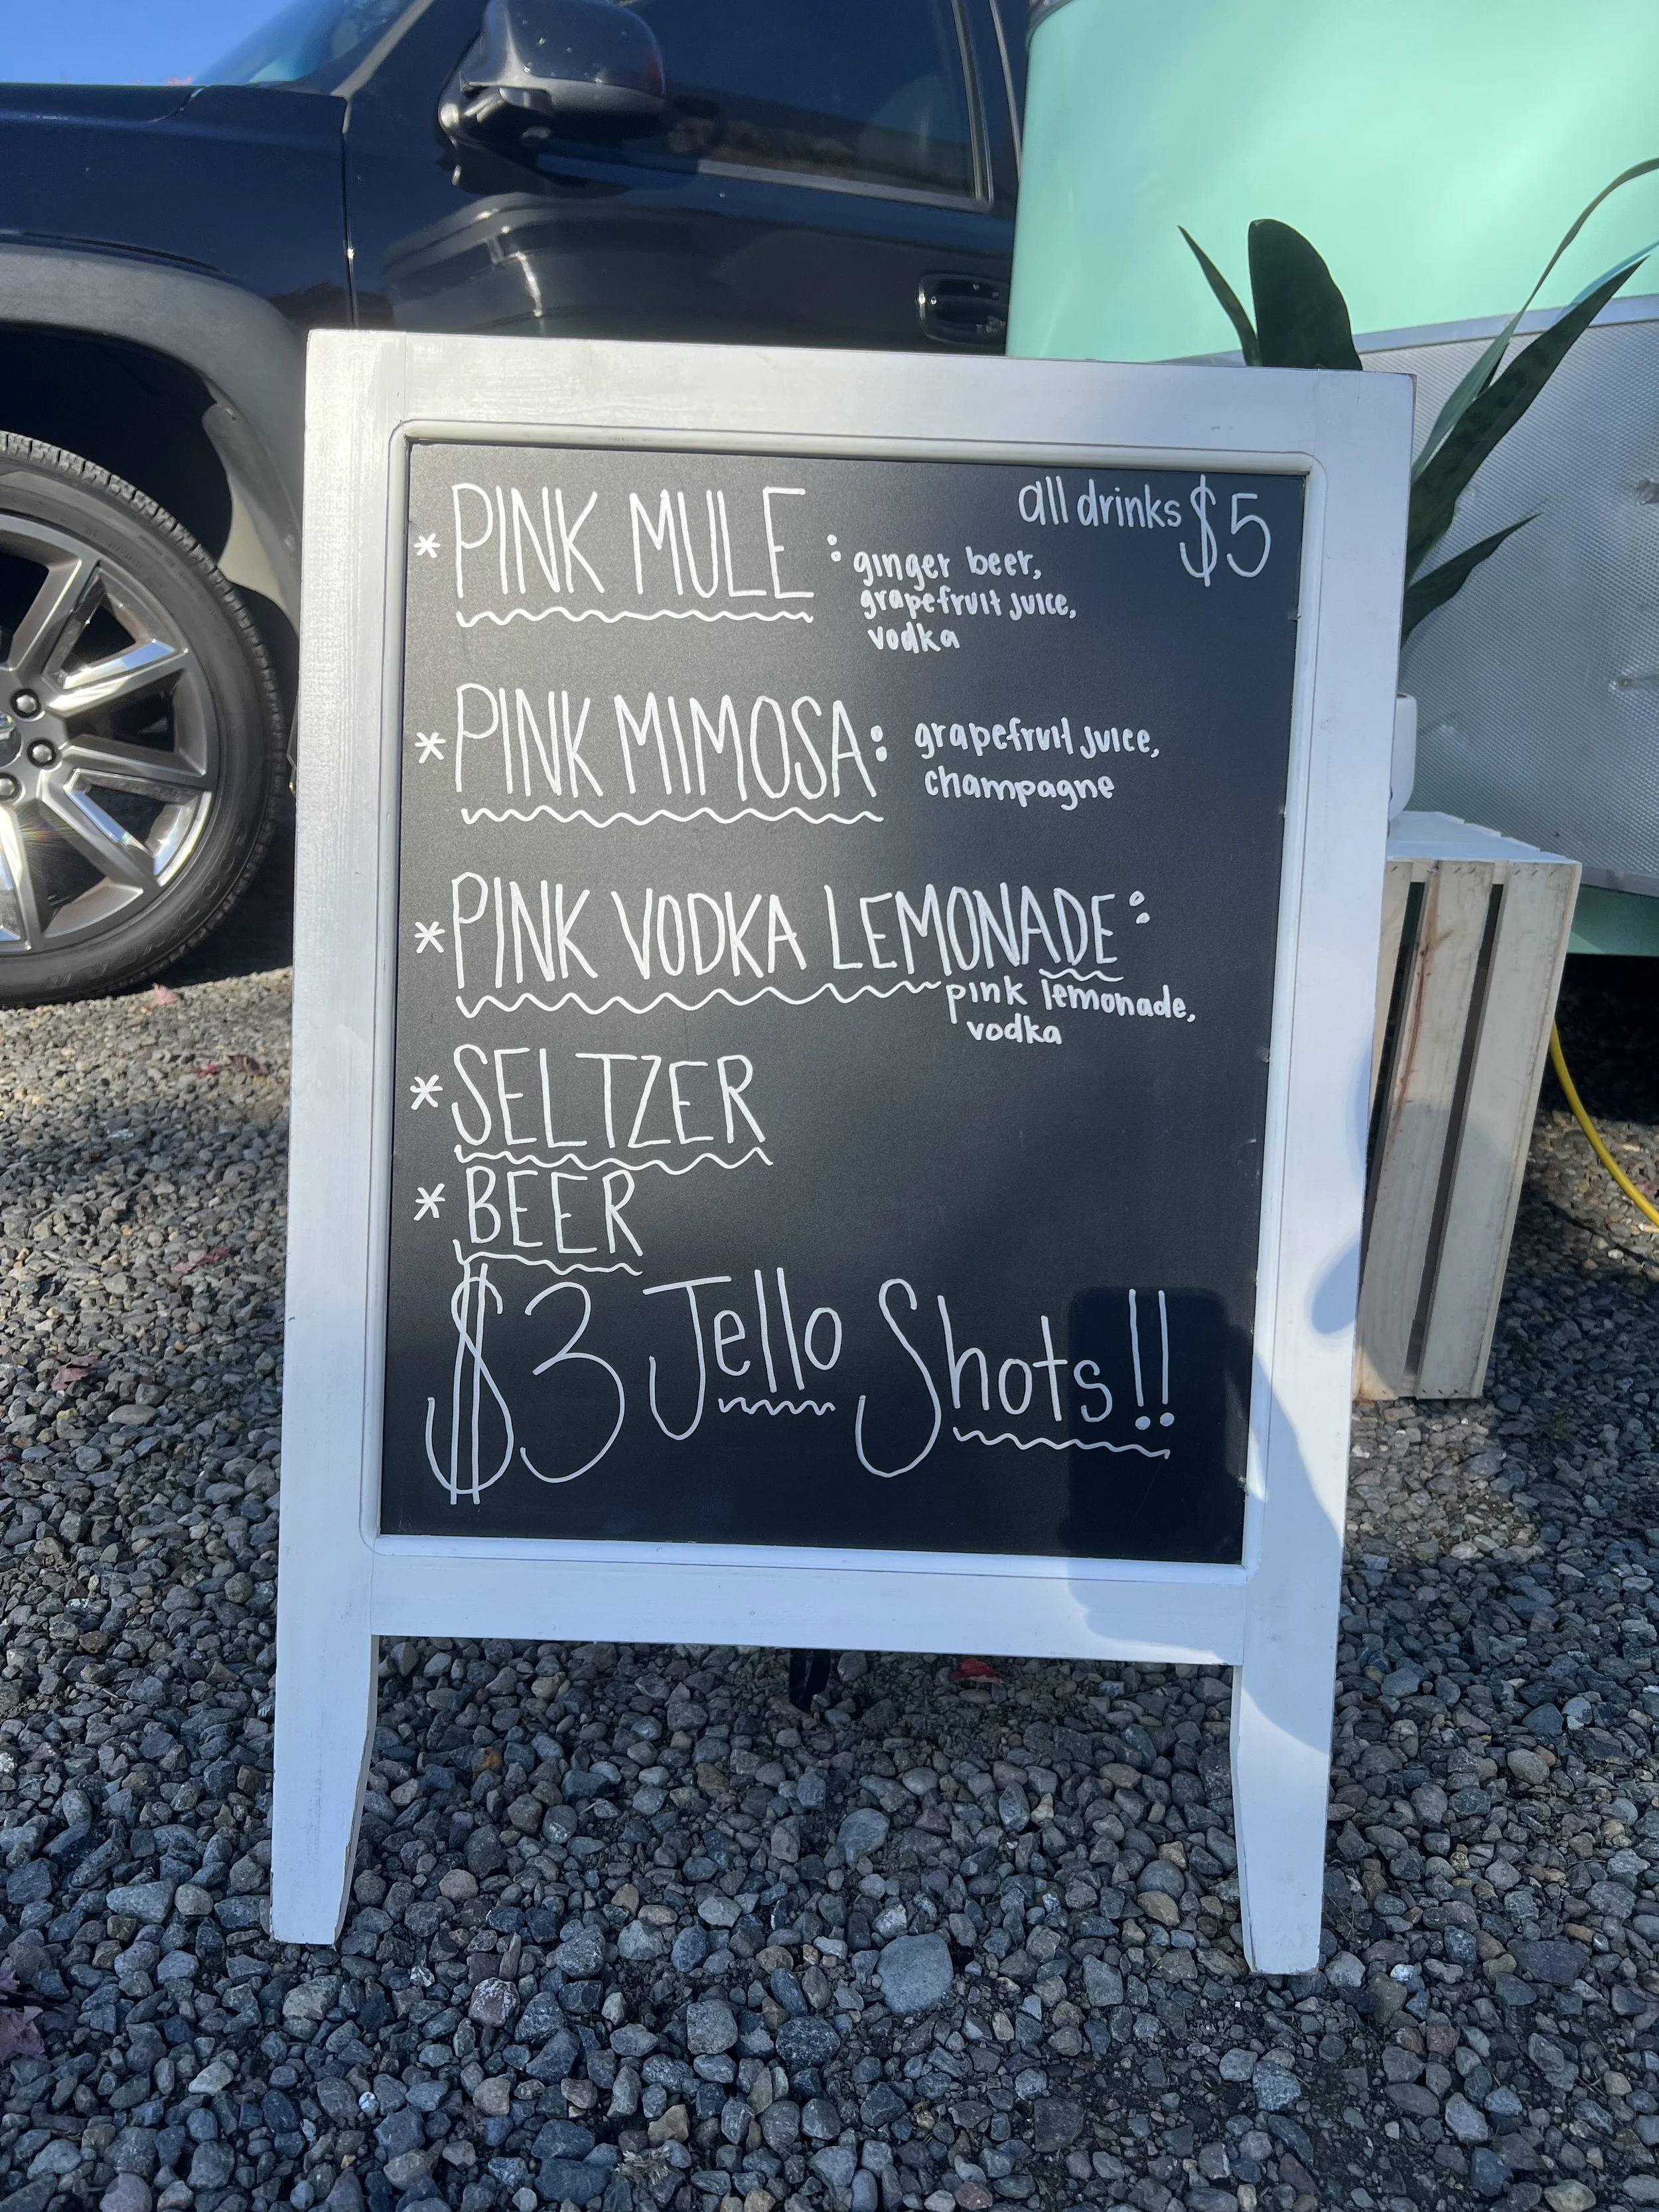 all drinks $5
* PINK MULE : ginger beer,
grapefruit juice,
vodka
* PINK MIMOSA: grapefruit juice,
champagne
* PINK VODKA LEMONADE:
pink lemonade,
vodka
* SELTZER
* BEER
$3 Jello Shots!!